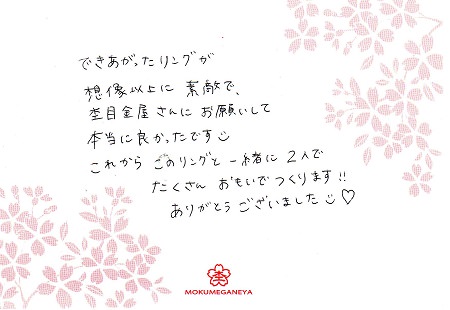 できあがったリングが
想像以上に 素敵で、
杢目金屋さんに お願いして
本当に良かったです☺
これから このリングと 一緒に 2人で
たくさん おもいで つくります!!
ありがとう ございました☺♡
杢
MOKUMEGANEYA